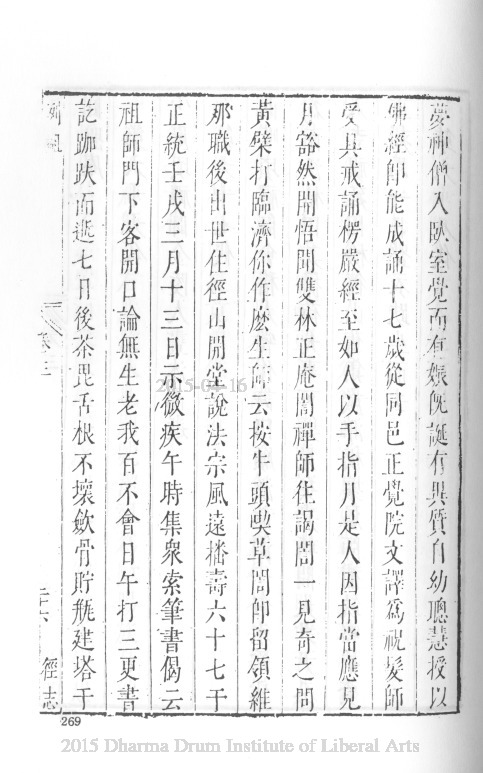 夢神僧入臥室覺而有娠旣誕有異質自幼聰慧授以
佛經卽能成誦十七歲從同邑正覺院文譯爲祝髮師
受具戒誦楞嚴經至如人以手指月是人因指當應見
月豁然開悟聞雙林正庵誾禪師往謁誾一見奇之問
黃檗打臨濟你作麽生師云按牛頭喫草誾卽留領維
那職後出世住徑山開堂說法宗風遠播壽六十七于
正統壬戌三月十三日示微疾午時集衆索筆書偈云
祖師門下客開口論無生老我百不會日午打三更書
訖跏趺而逝七日後茶毘舌根不壞斂骨貯甁建塔于
卷三
徑志
269
2015-04-16
2015 Dharma Drum Institute of Liberal Arts